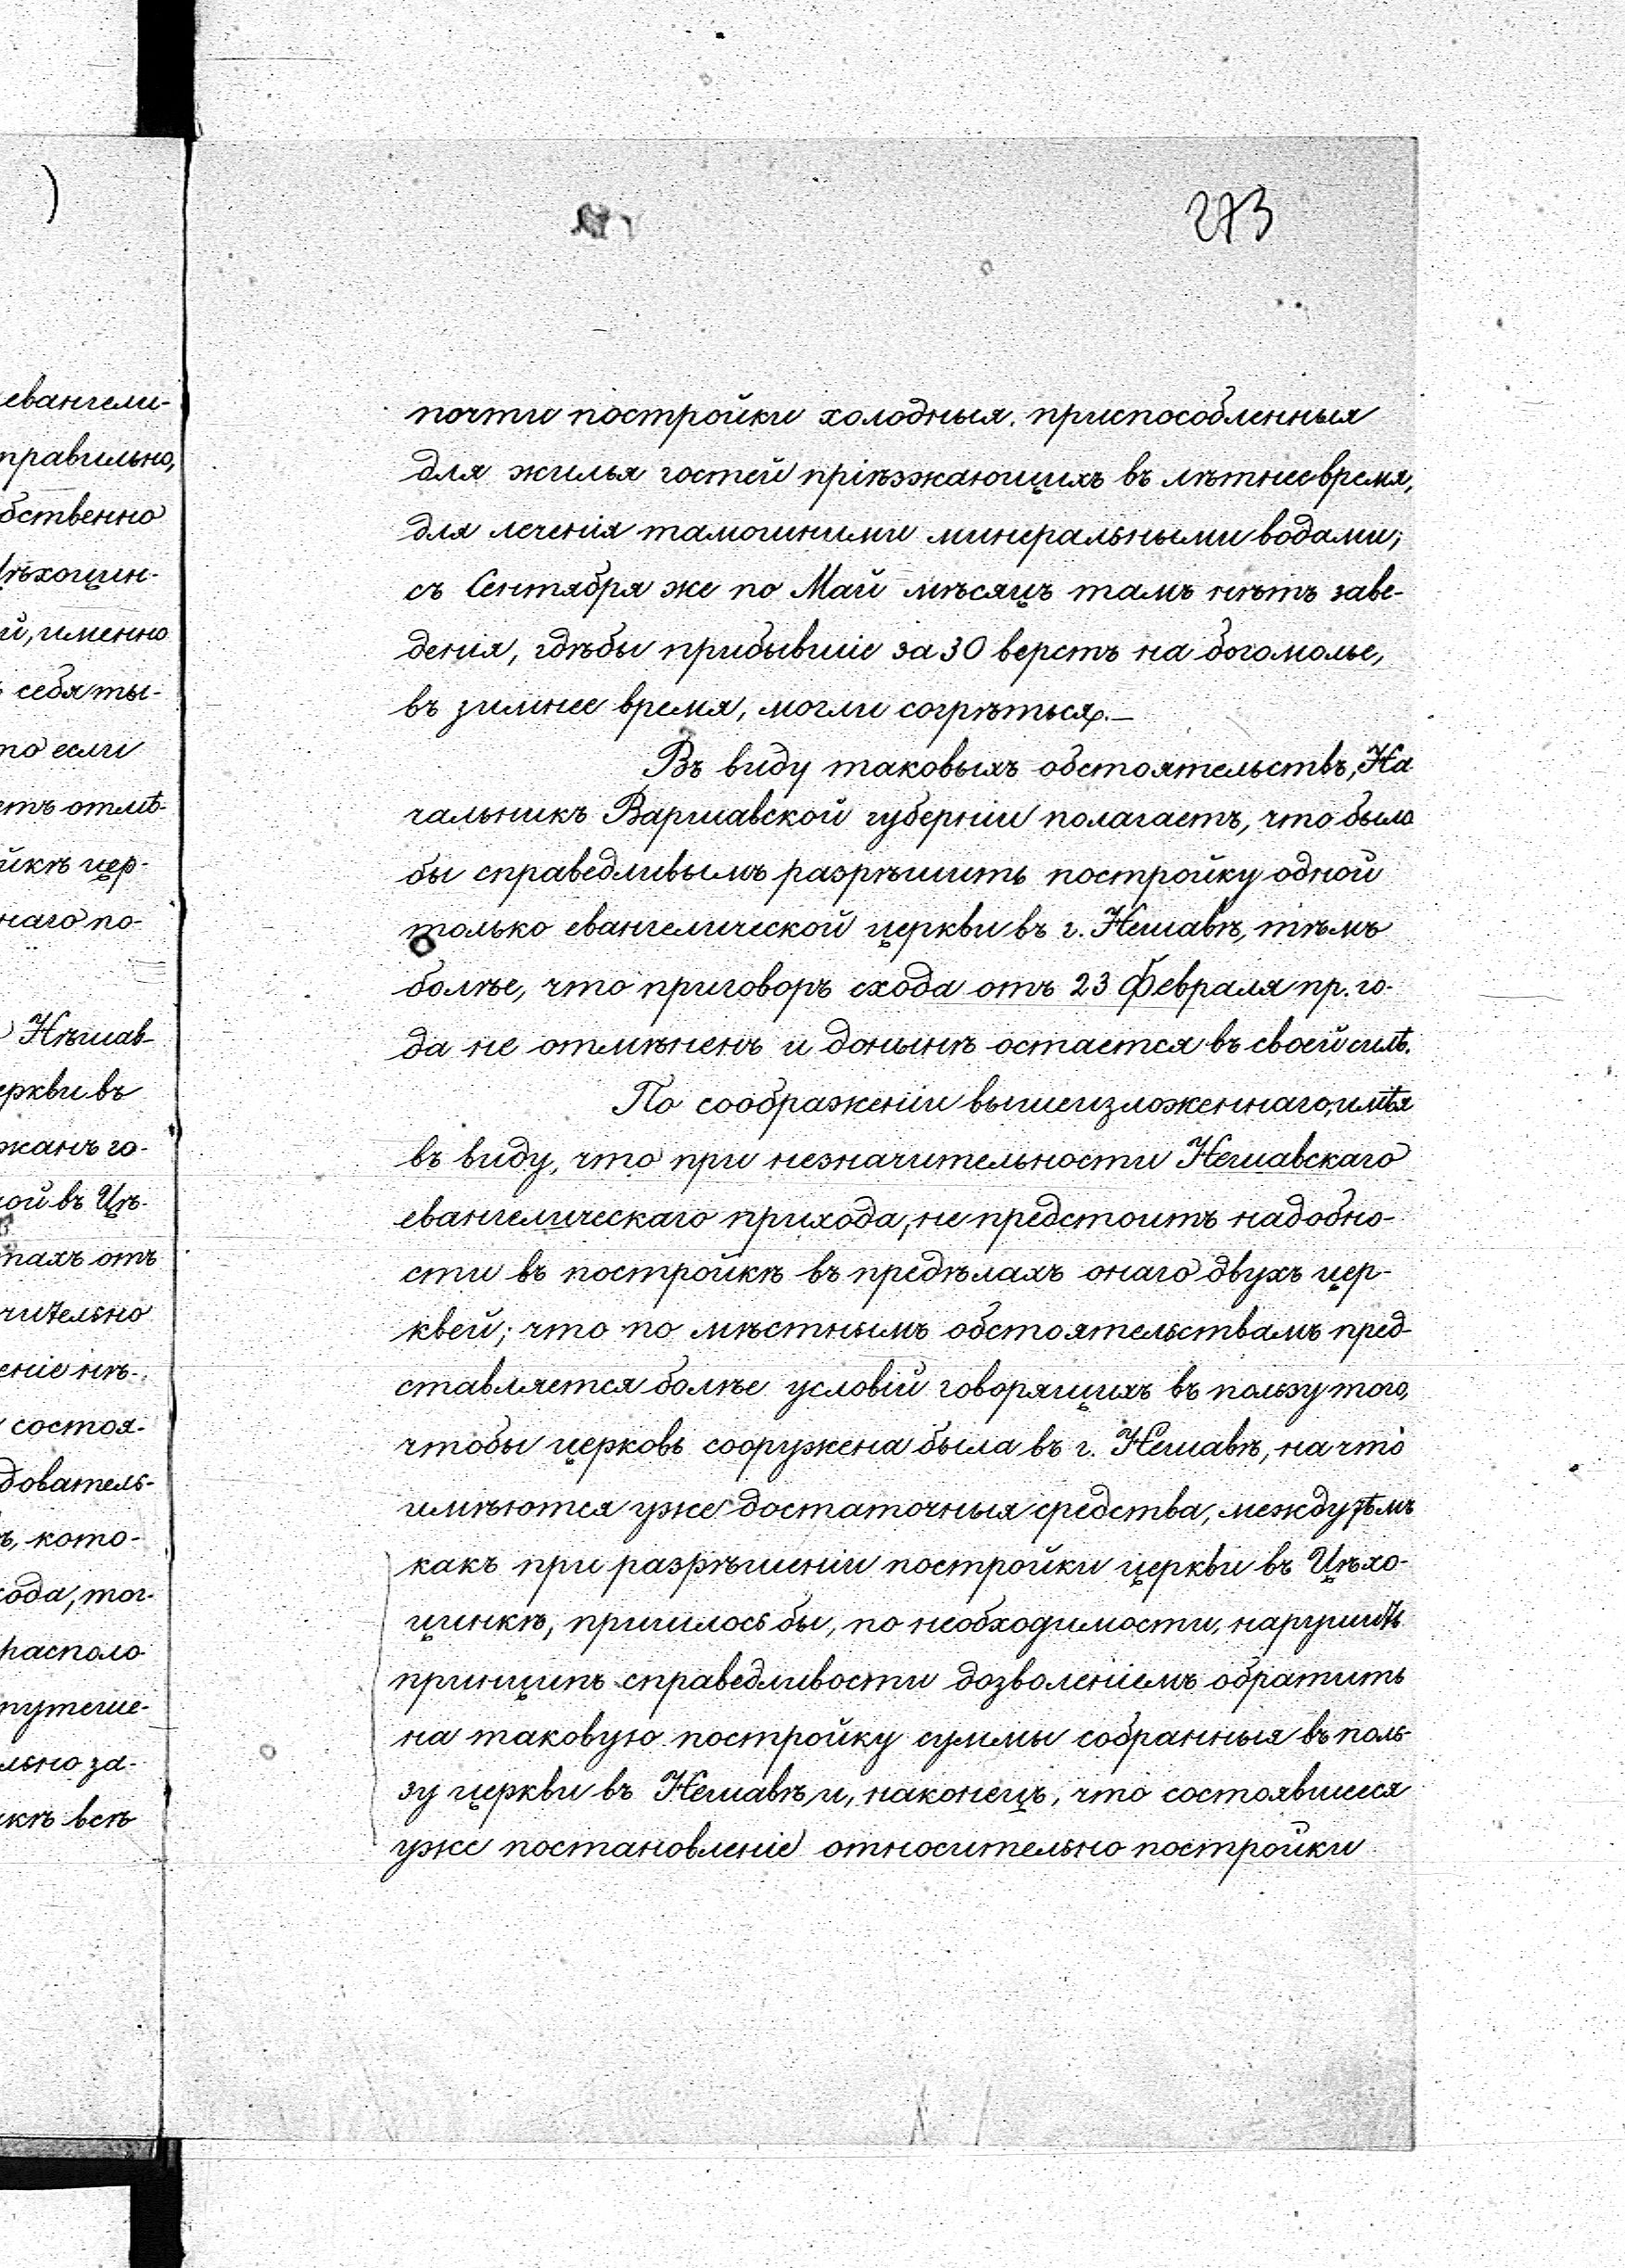 )
273
евангели-
правильно,
бственно
ѣхоцин-
й, именно
себя ты-
то если
етъ отмѣ-
йкѣ цер-
наго по-
Нѣшав-
еркви въ
жанъ го-
ной въ Цѣ-
тахъ отъ
чительно
еніе нѣ-
состоя-
довatель-
ъ, кото-
хода, тог-
располо
путеше-
льно за-
нкѣ всѣ
почти постройки холодныя, приспособленныя
для жилья гостей пріѣзжающихъ въ лѣтнее время,
для леченія тамошними минеральными водами;
съ Сентября же по Май мѣсяцъ тамъ нѣтъ заве-
денія, гдѣбы прибывшіе за 30 верстъ на богомолье,
въ зимнее время, могли согрѣться.—
Въ виду таковыхъ обстоятельствъ, На
чальникъ Варшавской губерніи полагаетъ, что было
бы справедливымъ разрѣшить постройку одной
только евангелической церкви въ г. Нешавѣ, тѣмъ
болѣе, что приговоръ схода отъ 23 Февраля пр. го-
да не отмѣненъ и донынѣ остается въ своей силѣ.
По соображеніи вышеизложеннаго, имѣя
въ виду, что при незначительности Нешавскаго
евангелическаго прихода, не предстоитъ надобно-
сти въ постройкѣ въ предѣлахъ онаго двухъ цер-
квей; что по мѣстнымъ обстоятельствамъ пред-
ставляется болѣе условій говорящихъ въ пользу того,
чтобы церковь сооружена была въ г. Нешавѣ, на что
имѣются уже достаточныя средства, между тѣмъ
какъ при разрѣшеніи постройки церкви въ Цѣхо-
цинкѣ, пришлось бы, по необходимости, нарушить
принципъ справедливости дозволеніемъ обратить
на таковую постройку суммы собранныя въ поль-
зу церкви въ Нешавѣ и, наконецъ, что состоявшееся
уже постановленіе относительно постройки